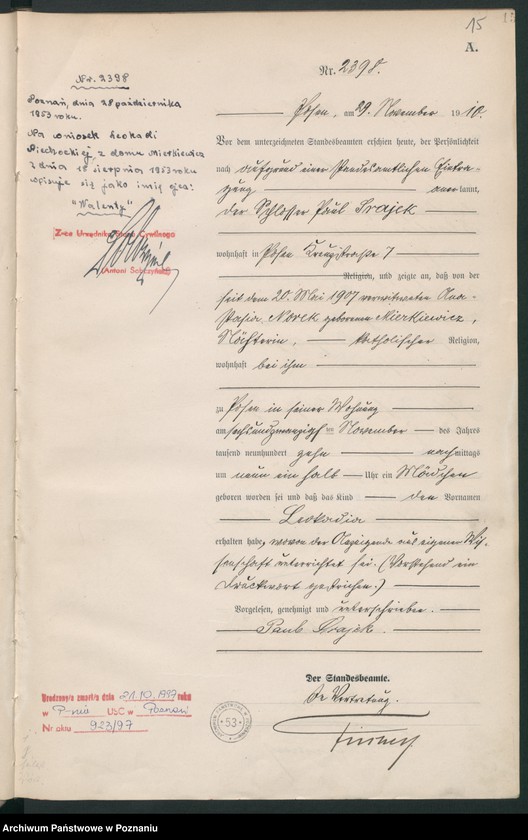 15
A.
Nr. 2398.
Posen, am 29. November 1910.
Vor dem unterzeichneten Standesbeamten erschien heute, der Persönlichkeit
nach aufgrund einer standesamtlichen Eintra-
gung anerkannt,
der Schlosser Paul Srajek
wohnhaft in Posen Kreuzstraße 7
Religion, und zeigte an, daß von der
seit dem 20. Mai 1907 verwitweten Ana-
stasia Norek geborenen Mierkiewicz,
Nähterin, katholischer Religion,
wohnhaft bei ihm
zu Posen in seiner Wohnung
am sechsundzwanzigsten November des Jahres
tausend neunhundert zehn nachmittags
um neun ein halb Uhr ein Mädchen
geboren worden sei und daß das Kind den Vornamen
Leokadia
erhalten habe, wovon der Anzeigende aus eigener Wis-
senschaft unterrichtet sei. (Vorstehend ein
Druckwort gestrichen.)
Vorgelesen, genehmigt und unterschrieben.
Paul Srajek.
Der Standesbeamte.
In Vertretung.
Nr. 2398
Poznań, dnia 28 października
1953 roku.
Na wniosek Leokadii
Piechockiej z domu Mierkiewicz
z dnia 18 sierpnia 1953 roku
wpisuje się jako imię ojca:
"Walenty"
Z-ca Urzędnika Stanu Cywilnego
(Antoni Sobczyński)
Urodzony/a zmarł/a dnia 21.10.1997 roku
w P-niu USC w Poznań
Nr aktu 923/97
53
Archiwum Państwowe w Poznaniu